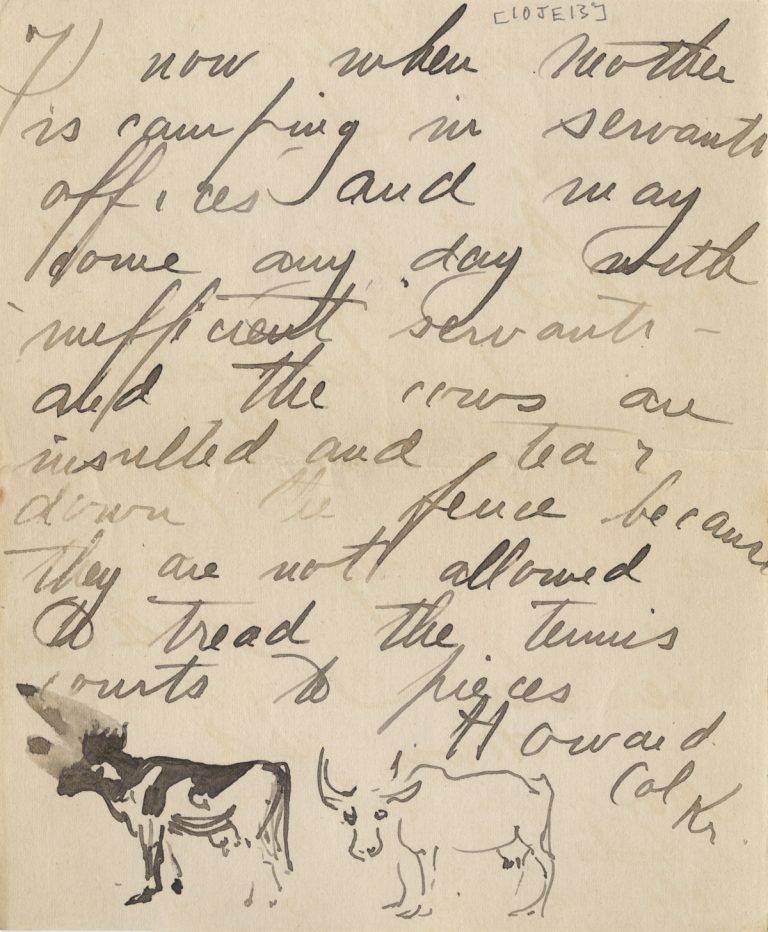 [10JE13]
7) now when Mother
is camping in servants
offices and may
come any day with
inefficient servants –
and the cows are
insulted and tear
down the fence because
they are not allowed
to tread the tennis
courts to pieces
Howard
Col
Kr.